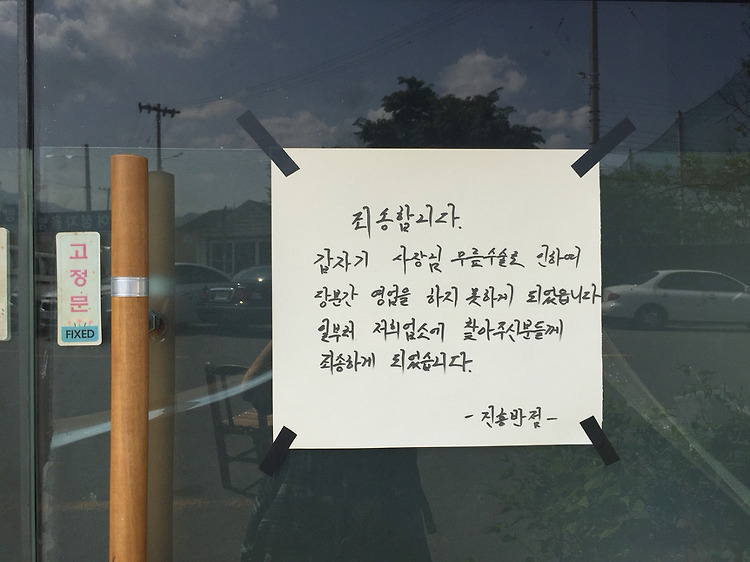 죄송합니다.
갑자기 사장님 무릎수술로 인하여
당분간 영업을 하지 못하게 되었습니다
일부러 저희업소에 찾아주신분들께
죄송하게 되었습니다.
- 진흥반점 -
고정문
FIXED